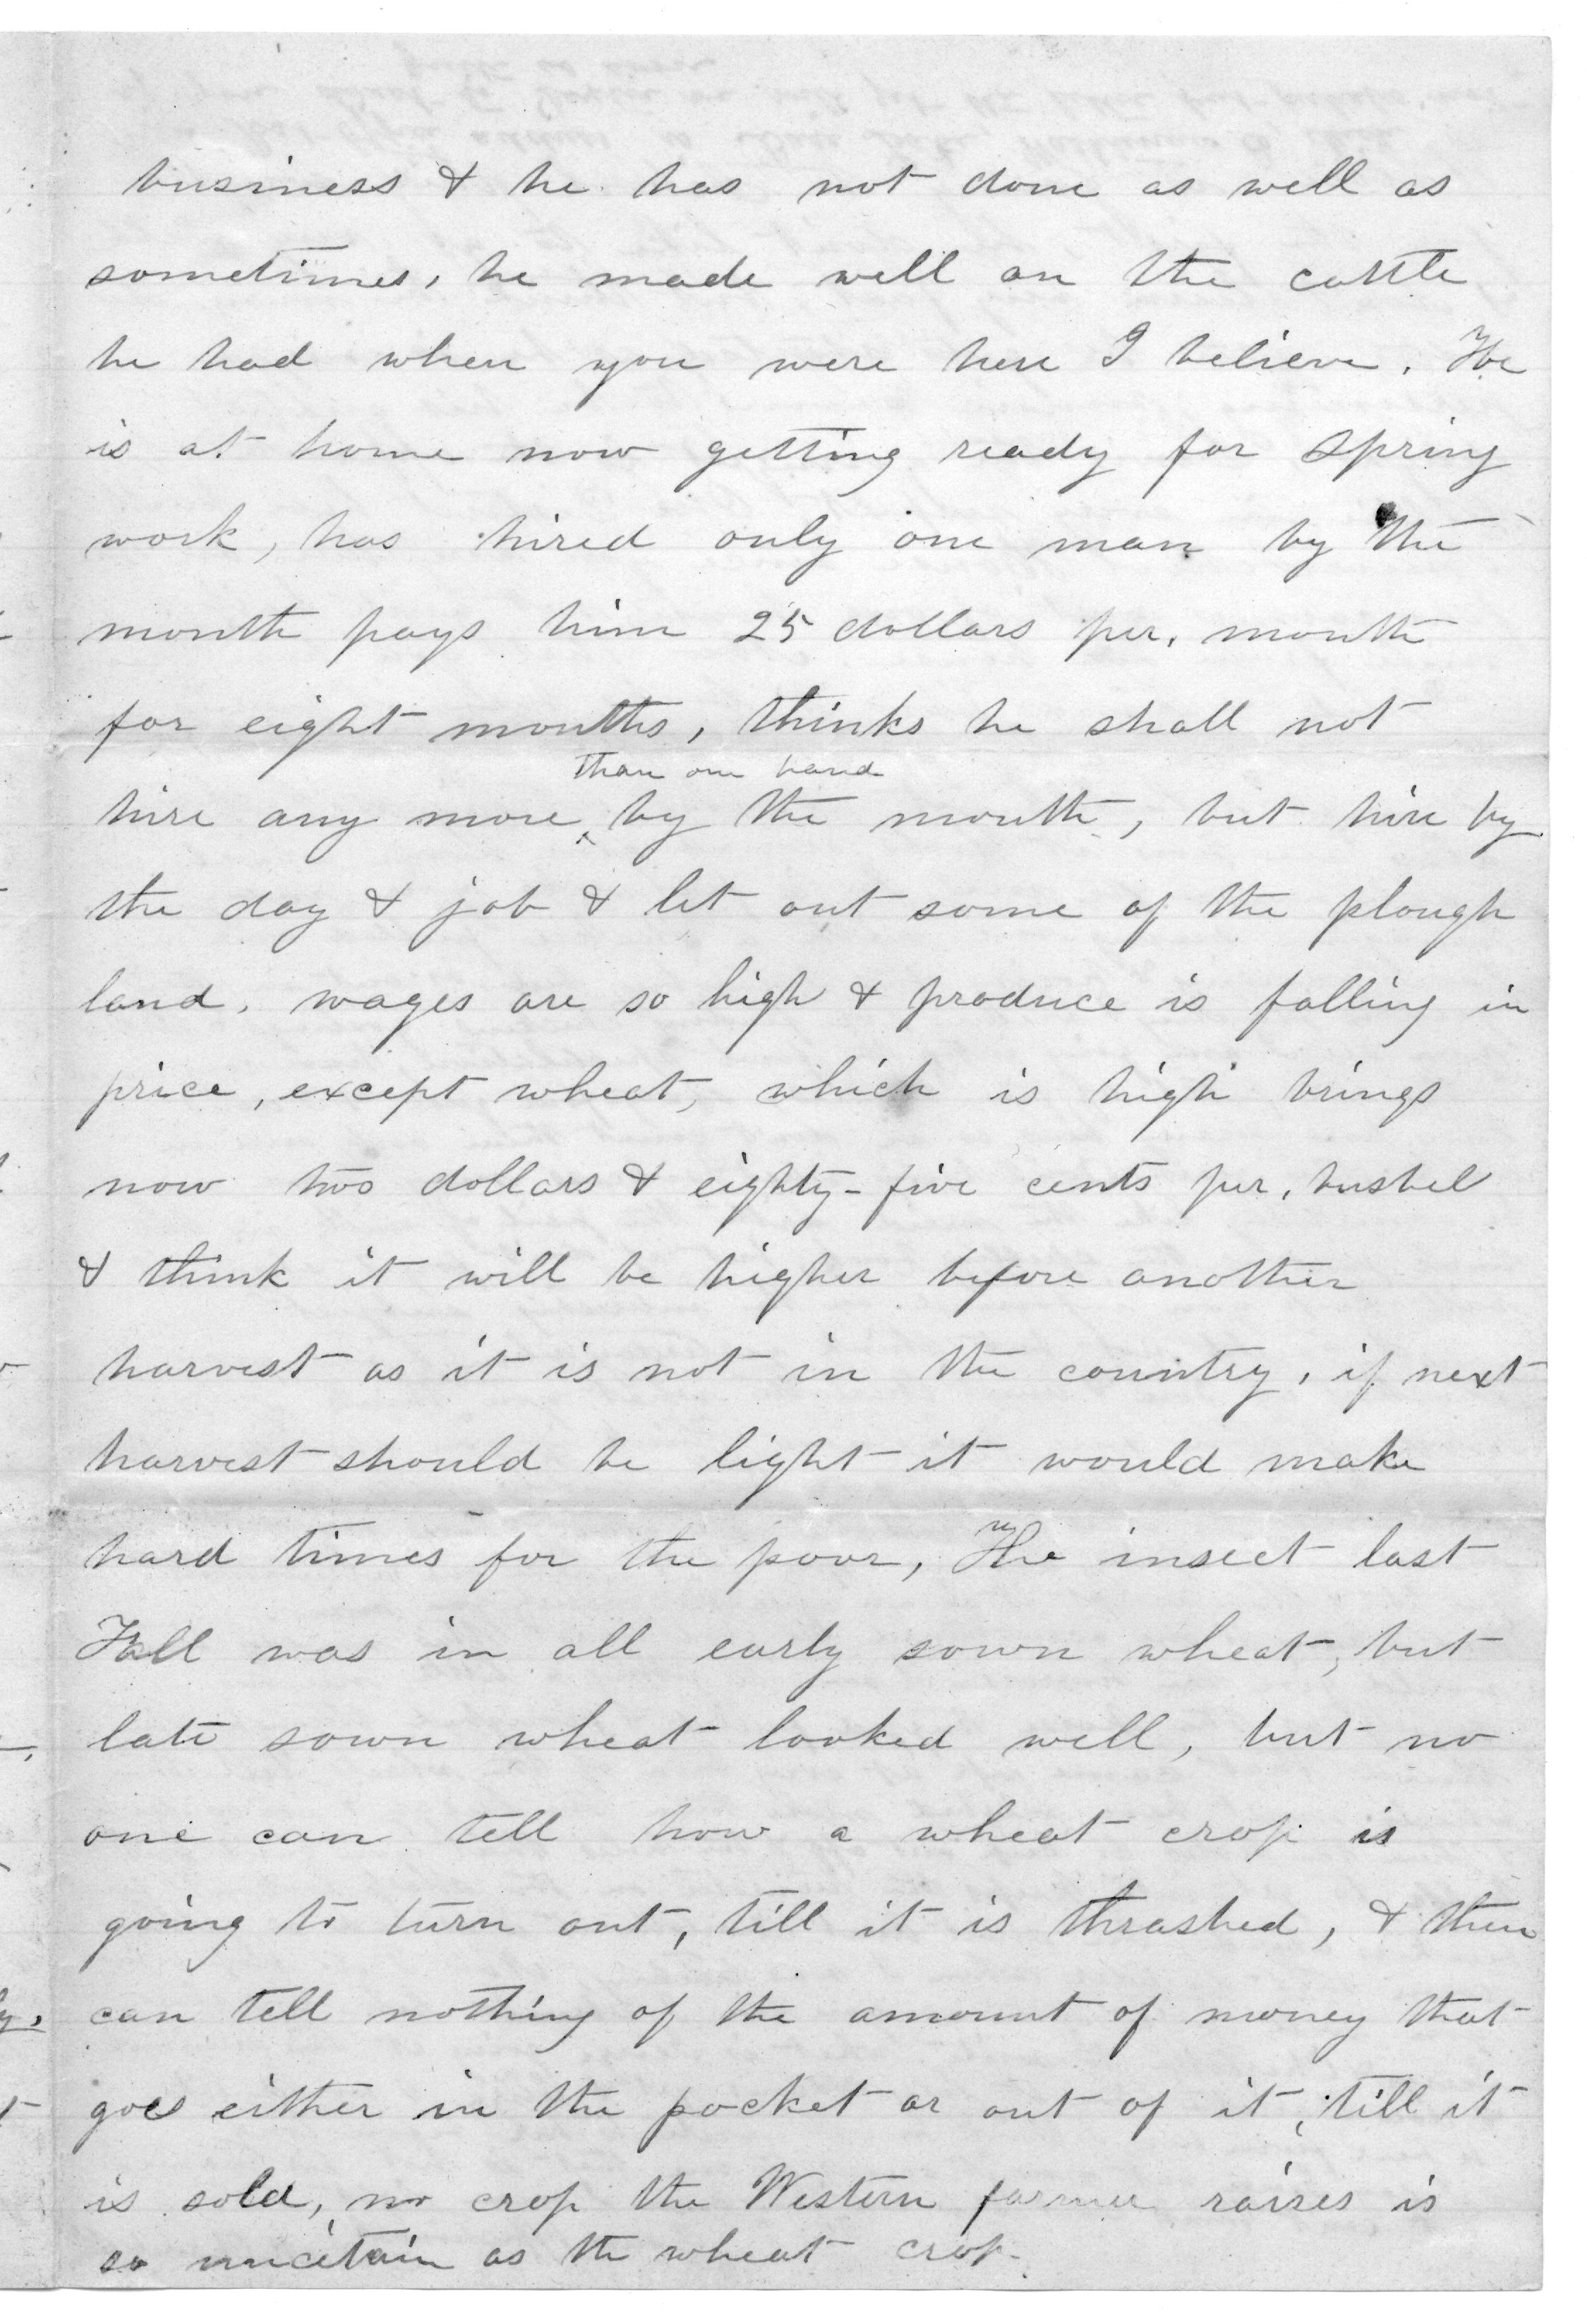 business & he has not done as well as
sometimes, he made well on the cattle
he had when you were here I believe. He
is at home now getting ready for Spring
work, has hired only one man by the
month pays him 25 dollars per, month
for eight months, thinks he shall not
than one hand
hire any more by the month, but hire by
the day & job & let out some of the plough
land. wages are so high & produce is falling in
price, except wheat, which is high brings
now two dollars & eighty-five cents per, bushel
& think it will be higher before another
harvest as it is not in the country, if next
harvest should be light it would make
hard times for the poor, The insect last
Fall was in all early sown wheat, but
late sown wheat looked well, but no
one can tell how a wheat crop is
going to turn out, till it is thrashed, & then
can tell nothing of the amount of money that
goes either in the pocket or out of it, till it
is sold, no crop the Western farmer raises is
so uncertain as the wheat crop.